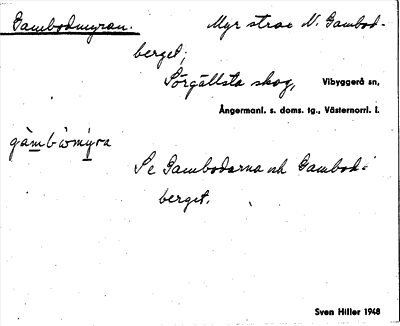 Gambodmyran. Myr strax N. Gambod-
berget,
Sörgållsta skog, Vibyggerå sn,
Ångermanl. s. doms. tg., Västernorrl. l.
gàmbωmýra
Se Gambodarna och Gambod-
berget.
Sven Hiller 1948